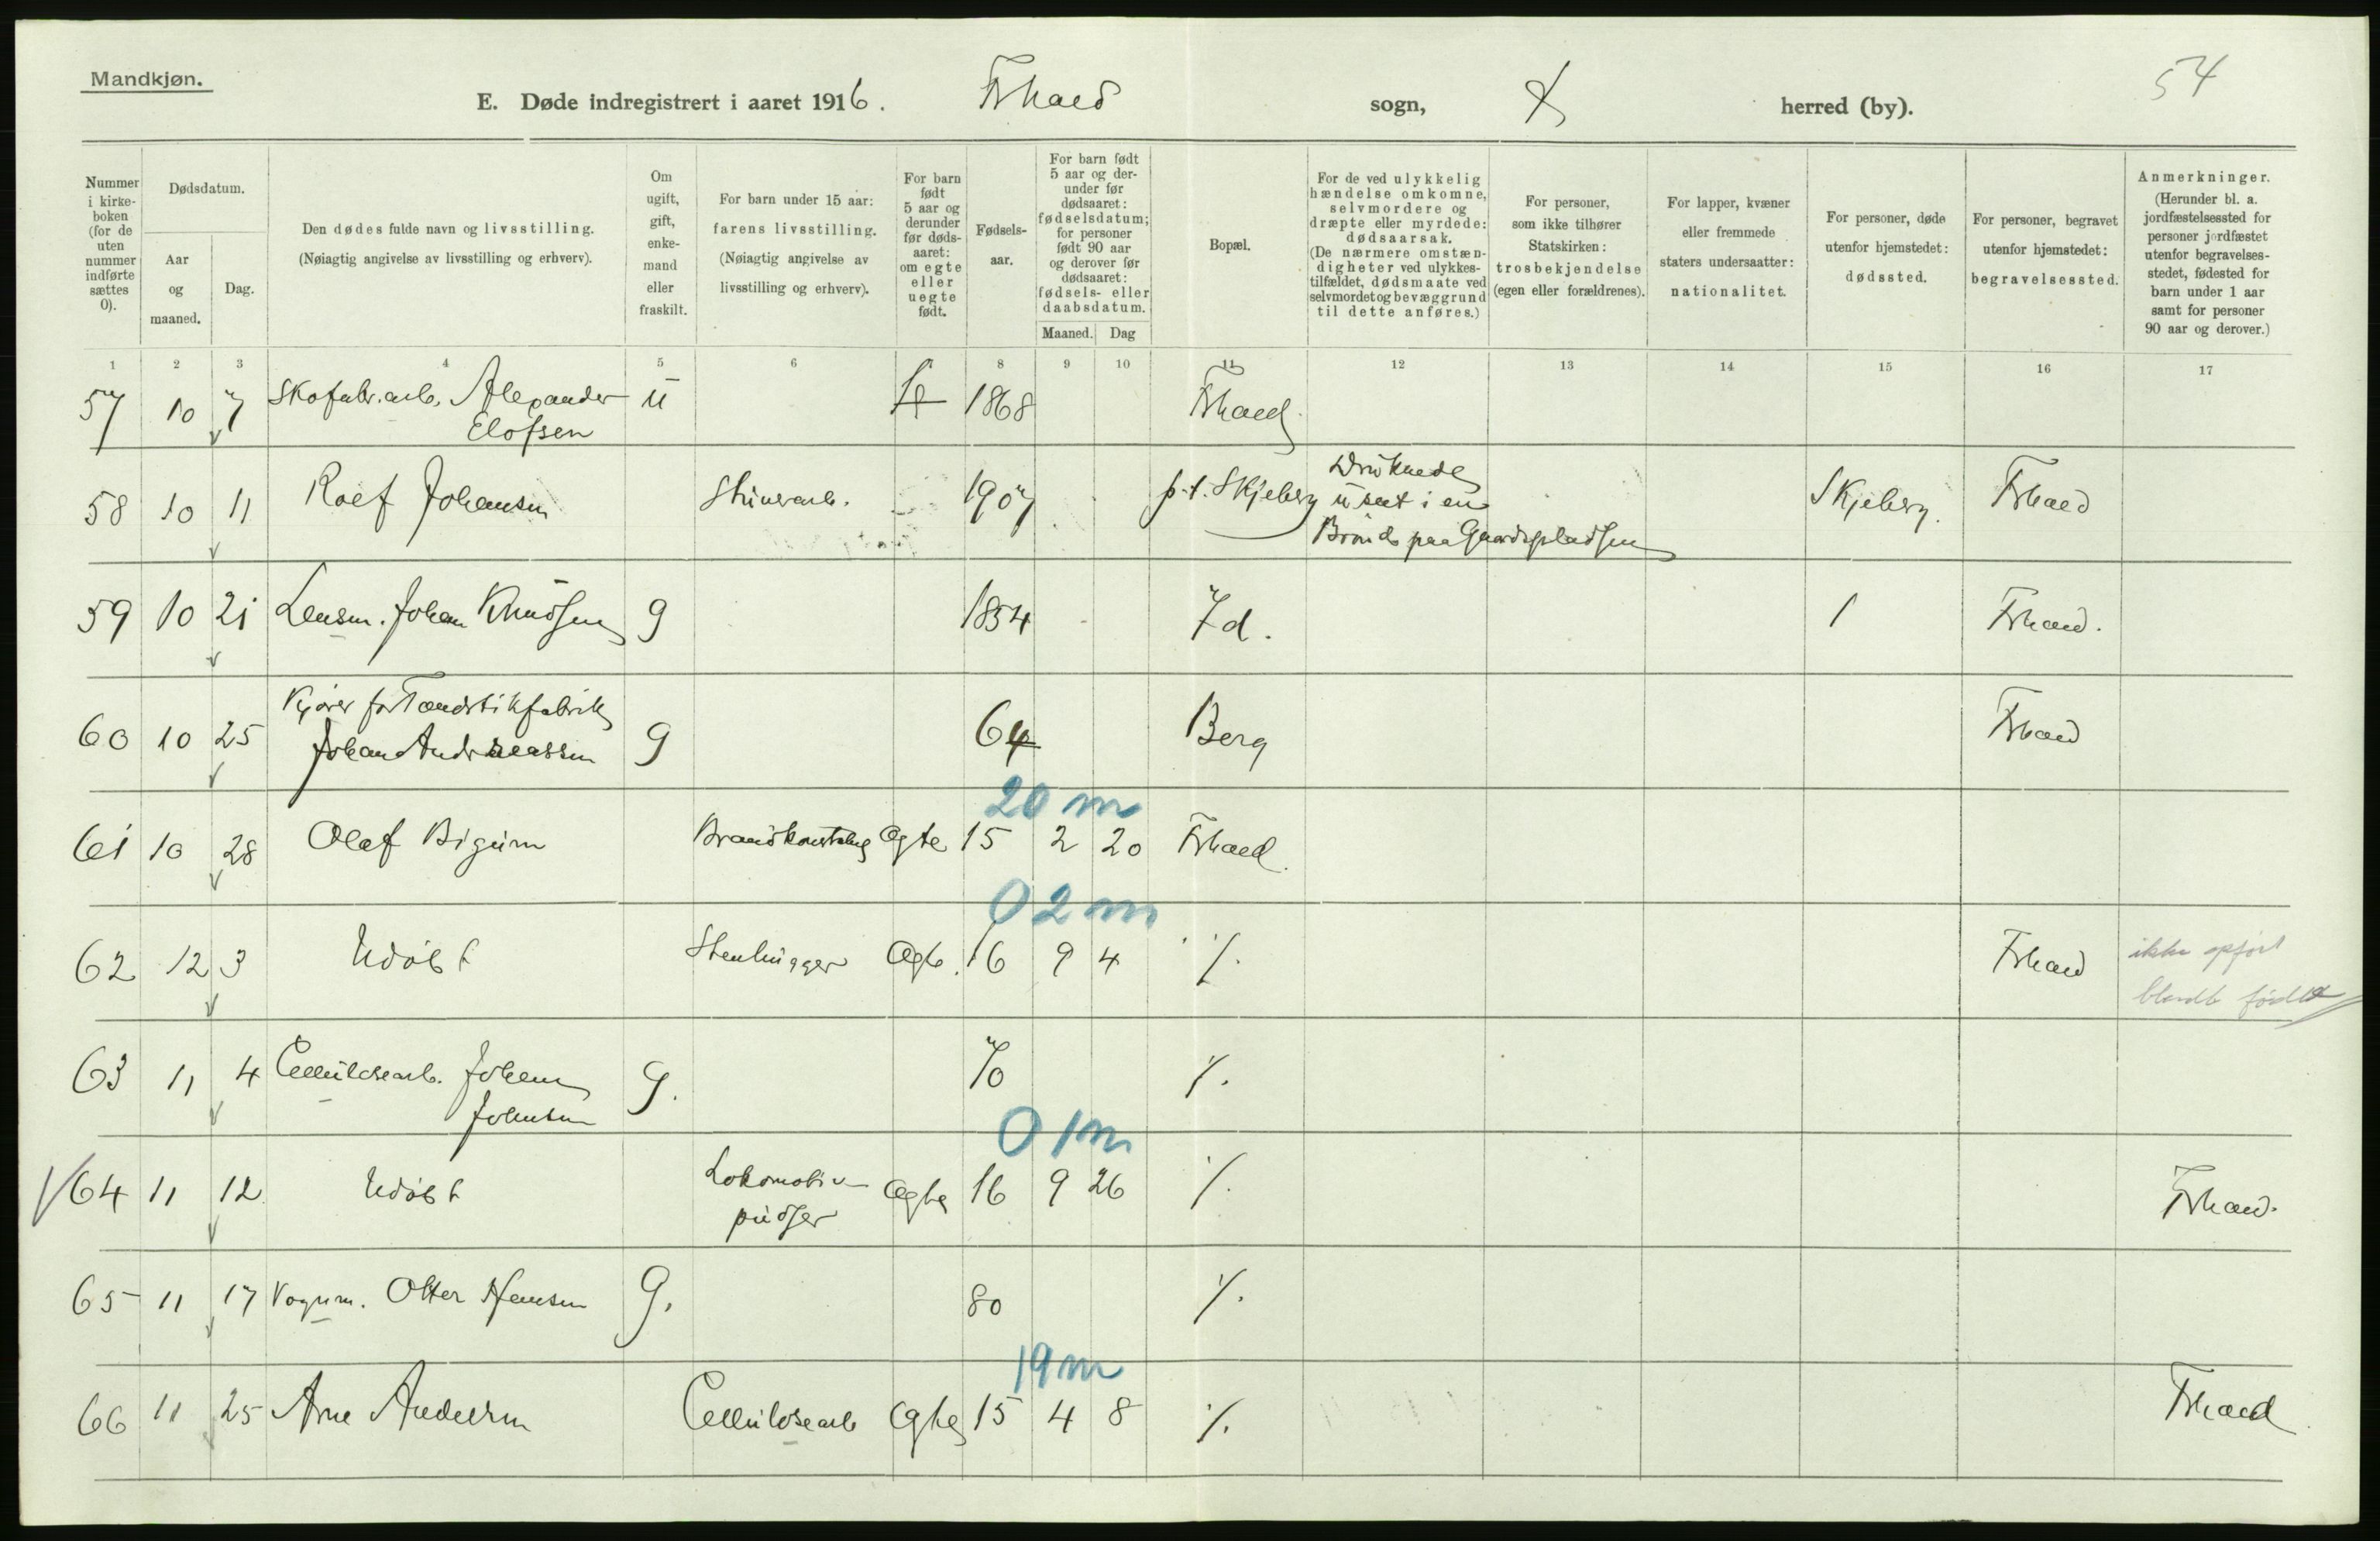 Mandkjøn.
54
E. Døde indregistrert i aaret 1916. Frhald sogn, herred (by).
Nummer i kirkeboken (for de uten nummer indførte sættes 0).
Dødsdatum.
Aar og maaned.
Dag.
Den dødes fulde navn og livsstilling.
(Nøiagtig angivelse av livsstilling og erhverv).
Om ugift, gift, enkemand eller fraskilt.
For barn under 15 aar: farens livsstilling.
(Nøiagtig angivelse av livsstilling og erhverv).
For barn født 5 aar og derunder før dødsaaret: om egte eller uegte født.
Fødselsaar.
For barn født 5 aar og derunder før dødsaaret: fødselsdatum; for personer født 90 aar og derover før dødsaaret: fødsels- eller daabsdatum.
Maaned. Dag
Bopæl.
For de ved ulykkelig hændelse omkomne, selvmordere og dræpte eller myrdede: dødsaarsak.
(De nærmere omstændigheter ved ulykkestilfældet, dødsmaate ved selvmordet og bevæggrund til dette anføres.)
For personer, som ikke tilhører Statskirken: trosbekjendelse (egen eller forældrenes).
For lapper, kvæner eller fremmede staters undersaatter: nationalitet.
For personer, døde utenfor hjemstedet: dødssted.
For personer, begravet utenfor hjemstedet: begravelsessted.
Anmerkninger.
(Herunder bl. a. jordfæstelsessted for personer jordfæstet utenfor begravelsesstedet, fødested for barn under 1 aar samt for personer 90 aar og derover.)
1 2 3 4 5 6 8 9 10 11 12 13 14 15 16 17
57 10 7 Skofabr.arb. Alexander u 1868 Frhald
Elofsen
58 10 11 Rolf Johansen Stenarb. 1907 p.t. Skjeberg Druknede Skjeberg. Frhald
u sat i en
Brønd paa Gaardspladsen
59 10 21 Lensm. Johan Knudsen g 1854 Id. Frhald.
Kjører for Tændstikfabrik
60 10 25 Johan Andreassen g 64 Berg Frhald
20 m
61 10 28 Olaf Bigum Brandkonstabel Ægte 15 2 20 Frhald.
0 2 m
62 12 3 Udøbt Stenhugger Ægte 16 9 4 ⁒ Frhald ikke opført
blandt fødte
63 11 4 Cellulosearb. Johan g. 70 ⁒
Johansen
0 1 m
64 11 12 Udøbt Lokomotiv- Ægte 16 9 26 ⁒ Frhald.
pudser
65 11 17 Vognm. Otter Hansen g. 80 ⁒
19 m
66 11 25 Arne Andersen Cellulosearb Ægte 15 4 8 ⁒ Frhald